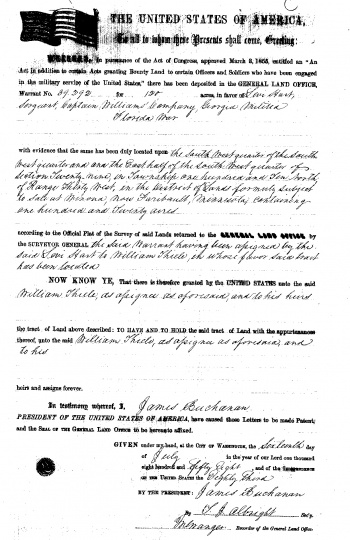 THE UNITED STATES OF AMERICA,
To all to whom these Presents shall come, Greeting:
WHEREAS, In pursuance of the Act of Congress, approved March 3, 1855, entitled an "An
Act in addition to certain Acts granting Bounty Land to certain Officers and Soldiers who have been engaged
in the military service of the United States," there has been deposited in the GENERAL LAND OFFICE,
Warrant No. 39292 for 120 acres, in favor of Levi Hart,
Sergeant, Captain Williams' Company, Georgia Militia
Florida War
with evidence that the same has been duly located upon the South West quarter of the South
West quarter and the East half of the South West quarter of
section Twenty nine, in Township one hundred and Ten North
of Range Thirty West, in the District of Lands formerly subject
to sale at Winona, now Faribault, Minnesota, containing
one hundred and Twenty acres
according to the Official Plat of the Survey of said Lands returned to the GENERAL LAND OFFICE by
the SURVEYOR GENERAL the said Warrant having been assigned by the
said Levi Hart to William Thiele, in whose favor said tract
has been located
NOW KNOW YE, That there is therefore granted by the UNITED STATES unto the said
William Thiele, as assignee as aforesaid, and to his heirs
the tract of Land above described: TO HAVE AND TO HOLD the said tract of Land with the appurtenances
thereof, unto the said William Thiele, as assignee as aforesaid, and
to his
heirs and assigns forever.
In testimony whereof, I, James Buchanan
PRESIDENT OF THE UNITED STATES OF AMERICA, have caused these Letters to be made Patent,
and the SEAL OF THE GENERAL LAND OFFICE to be hereunto affixed.
GIVEN under my hand, at the CITY OF WASHINGTON, the Sixteenth day
of July in the year of our Lord one thousand
eight hundred and Fifty Eight, and of the INDEPENDENCE
OF THE UNITED STATES the Eighty Third
BY THE PRESIDENT: James Buchanan
By T. J. Albright Sec'y.
Recorder of the General Land Office.